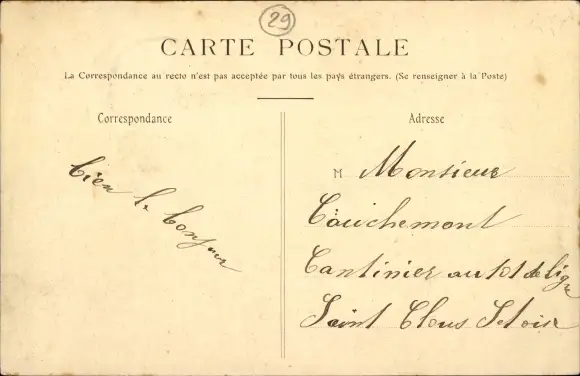 29
CARTE POSTALE
La Correspondance au recto n'est pas acceptée par tous les pays étrangers. (Se renseigner à la Poste)
Correspondance
Adresse
bien le bonjour
M Monsieur
Cauchemont
Cantinier au 101 de ligne
Saint Clous